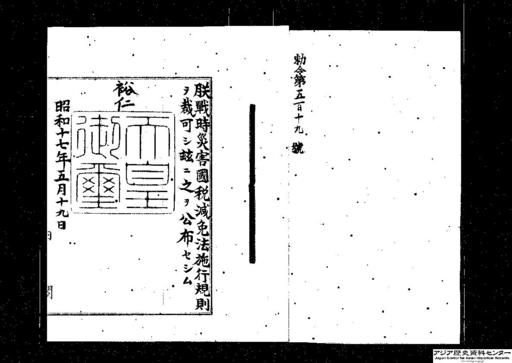 勅令第五百十九號
朕戰時災害國税減免法施行規則
ヲ裁可シ茲ニ之ヲ公布セシム
裕仁
天皇
御璽
昭和十七年五月十九日
アジア歴史資料センター
Japan Center for Asian Historical Records